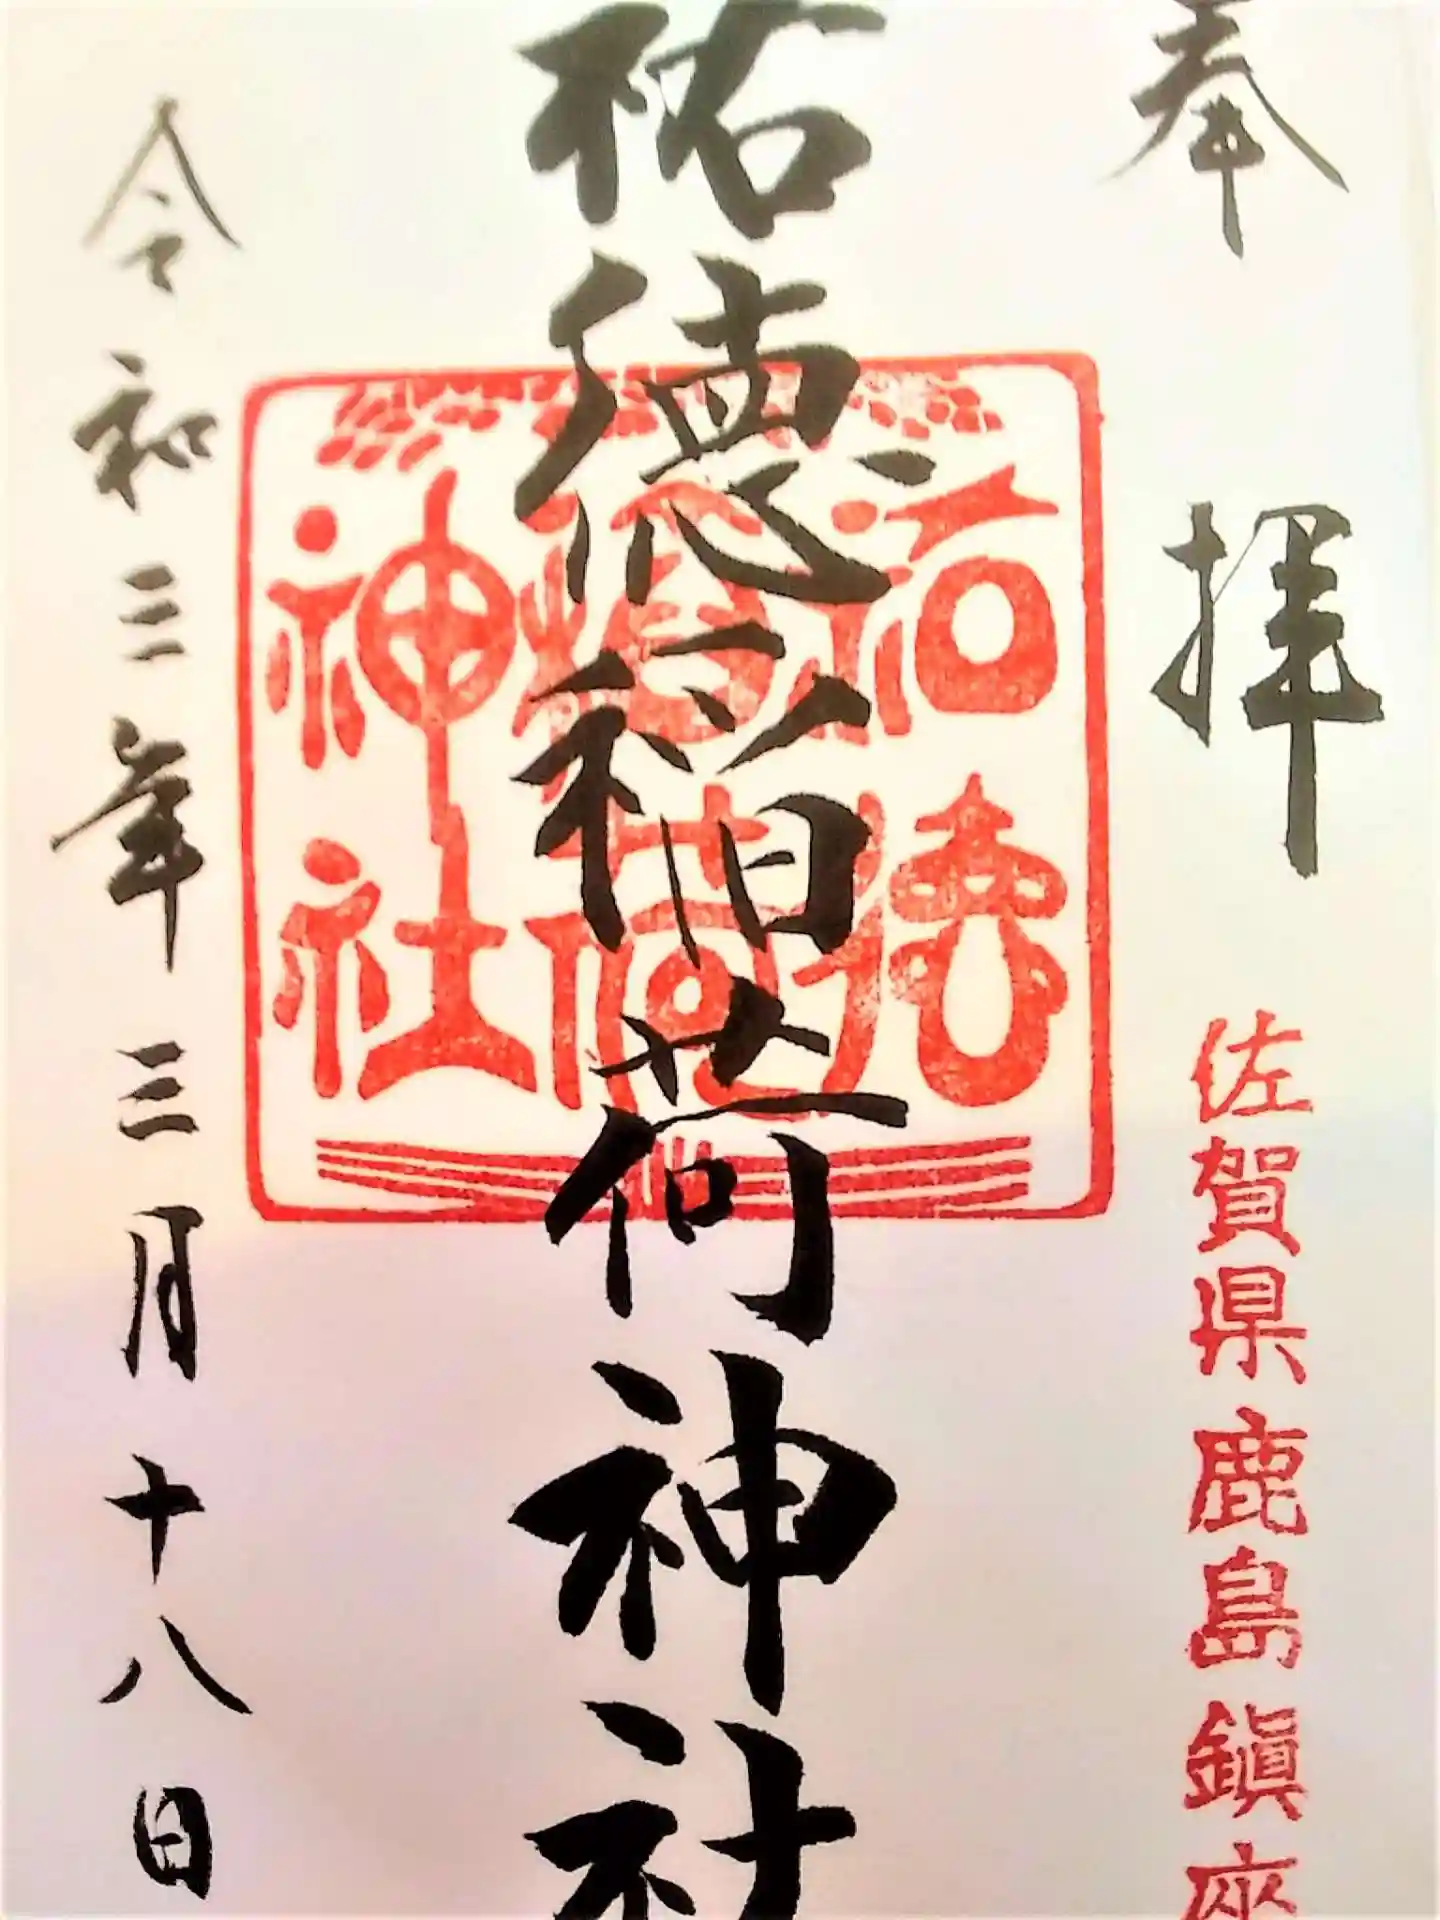 奉拝
佐賀県鹿島鎮座
祐徳稲荷神社
祐徳
稲荷
神社
令和三年三月十八日